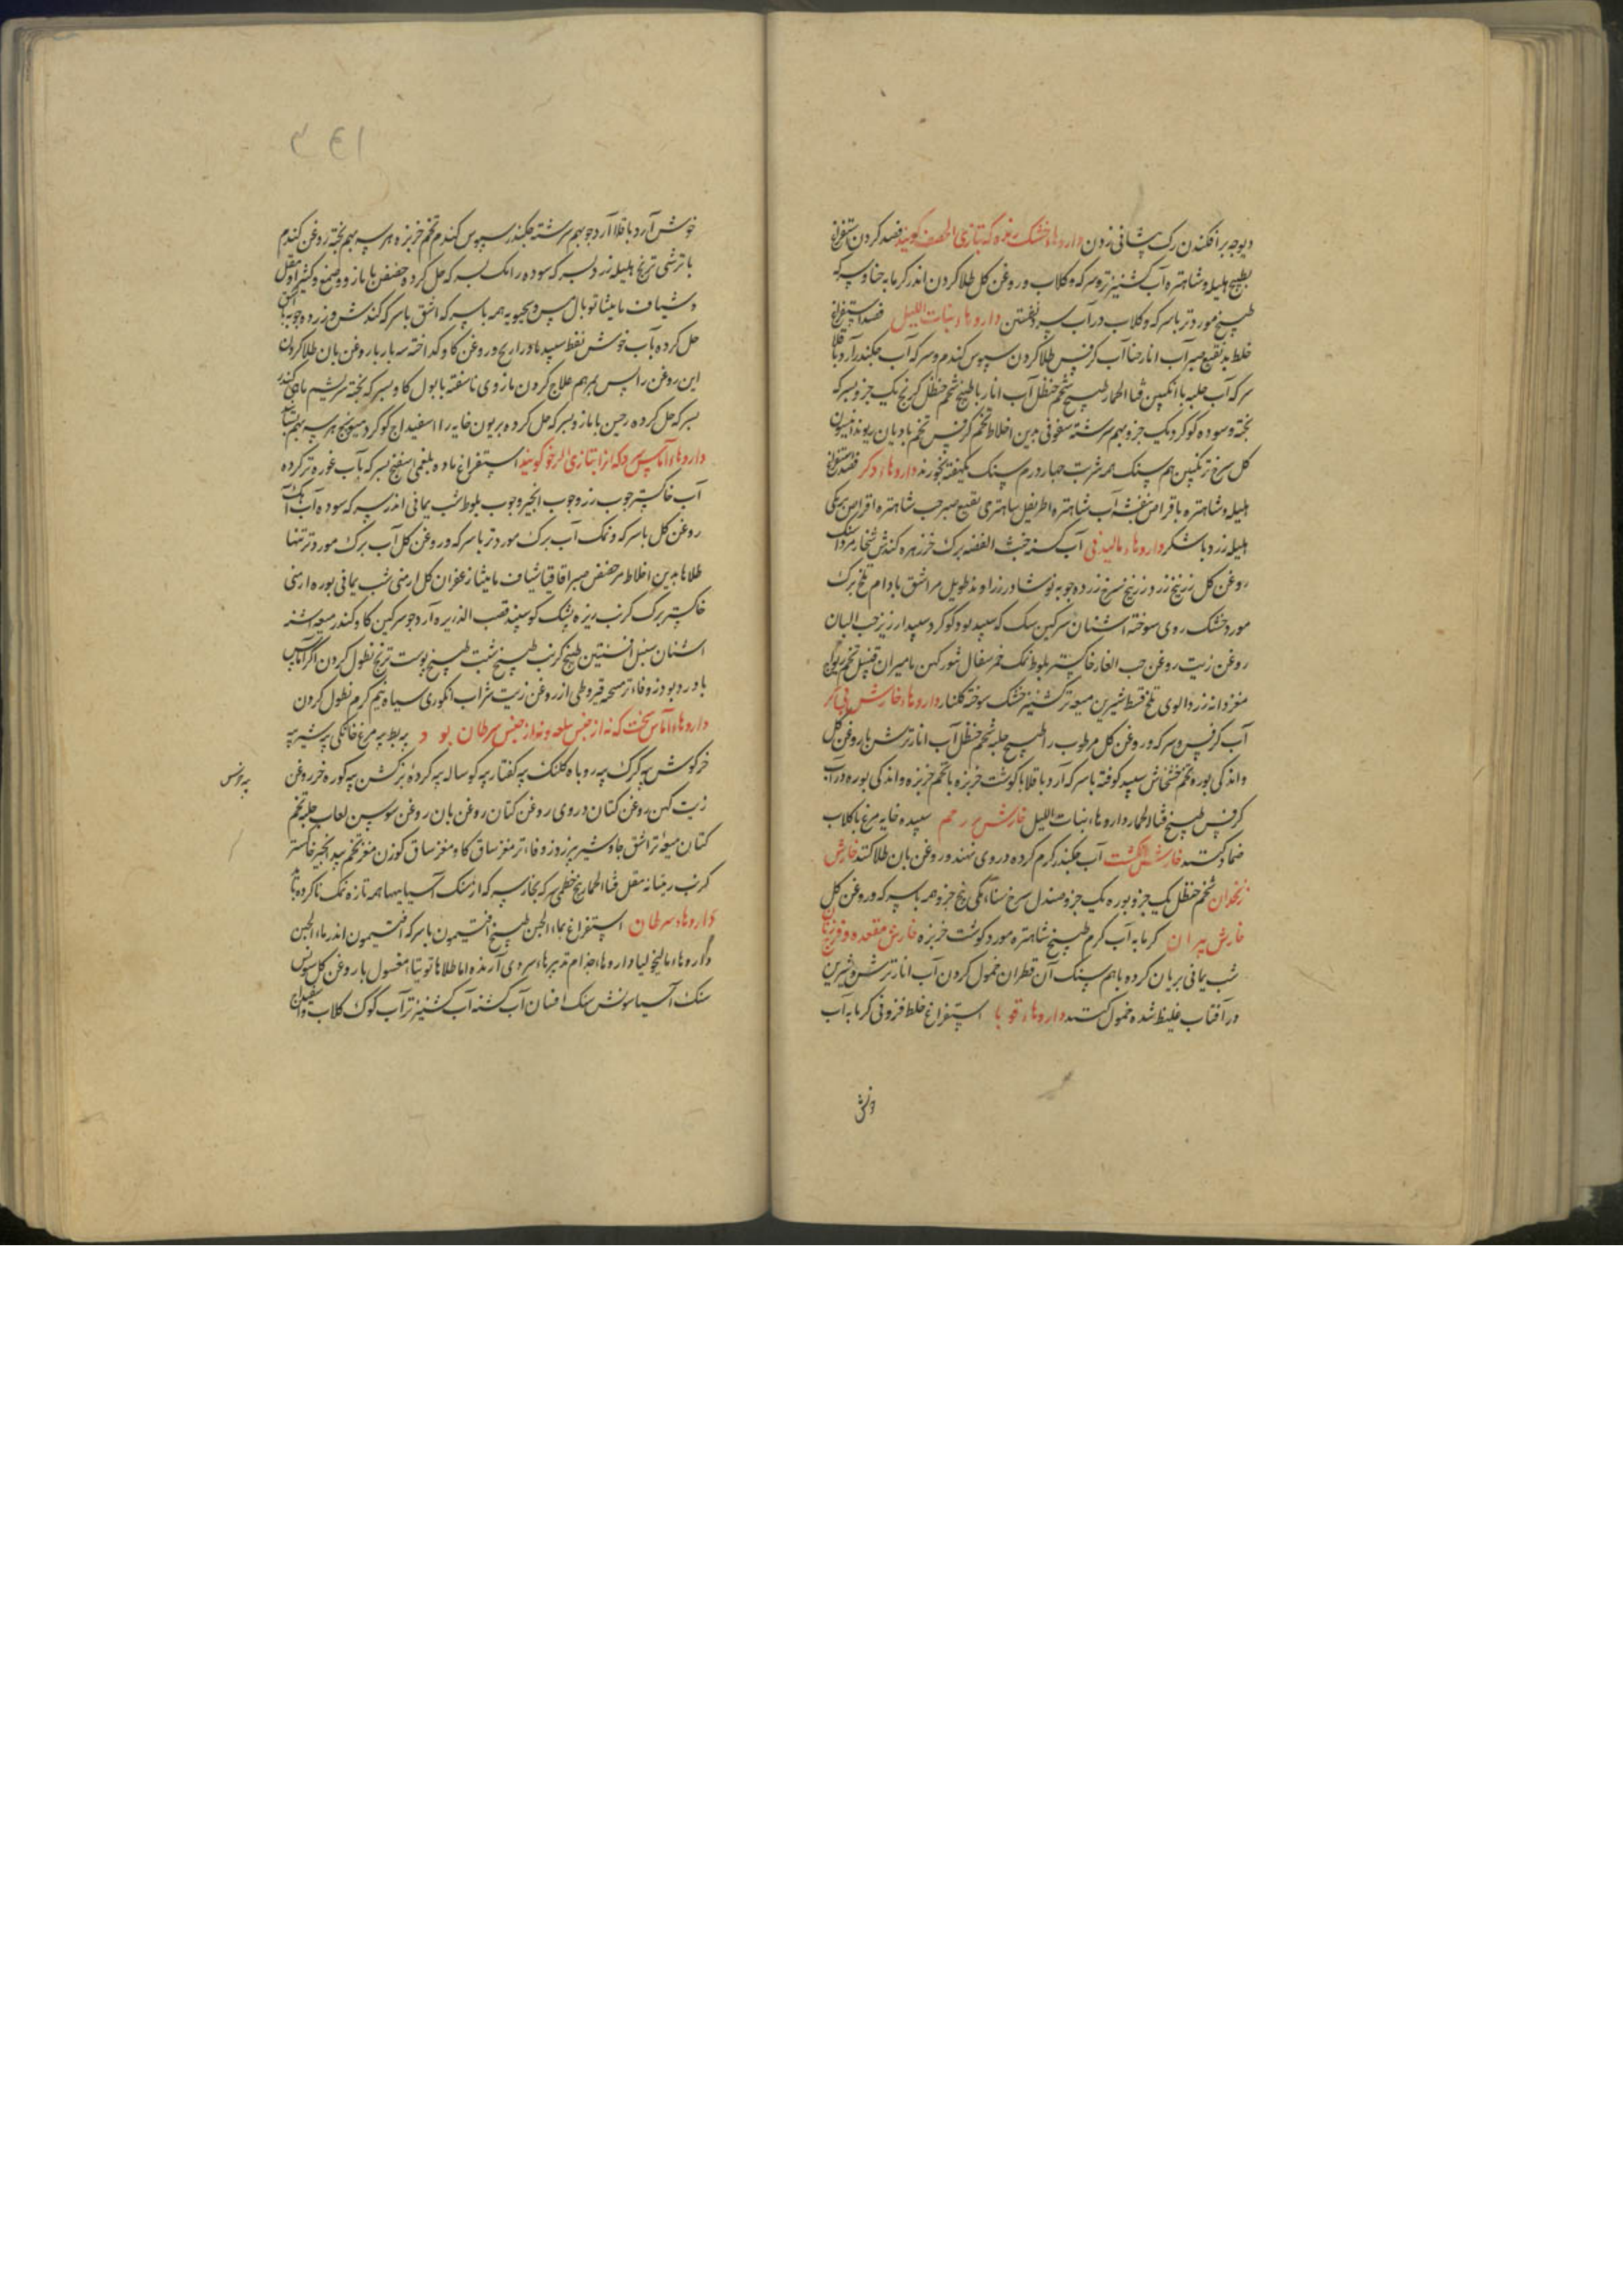 دیوجه برافکندن رک پیشانی زدن داروهاء خشک ریزه که بتازی الحصف کویند فصد کردن استفراغ
بطبیخ هلیله و شاهتره آب کشنیز تر و سرکه و کلاب و روغن کل طلا کردن اندر کرمابه حنا و سرکه
طبیخ مورد تر با سرکه و کلاب در آب سرد نشستن داروهاء بنات اللیل فصد استفراغ
خلط بد بنقیع صبر آب انار حنا آب کرفس طلا کردن سپوس کندم و سرکه آب چکندر آرد باقلا
سرکه آب حلبه با انکبین قثاء الحمار طبیخ شحم حنظل آب انار با طبیخ شحم حنظل کرنج یک جزو بسرکه
پخته و سوده کوکرد یک جزو بهم سرشته سفوفی بدین اخلاط تخم کرفس تخم بادیان ریوند انیسون
کل سرخ ترنکبین هم سنک همه شربت چهار درم سنک یکهفته بخورند داروهاء دکر فصد استفراغ
هلیله و شاهتره با قراص بنفشه آب شاهتره اطریفل شاهتری نقیع صبر حب شاهتره اقراص
هلیله زرد با شکر داروهاء مالیدنی آب کسنه خبث الفضه برک خرزهره کندش شخار مردانسنک
روغن کل زرنیخ زرد زرنیخ سرخ زرده چوبه نوشادر زراوند طویل مر اشق بادام تلخ برک
مورد خشک روی سوخته اشنان سرکین سک که سپید بود کوکرد سپید ارزیز حب البان
روغن زیت روغن حب الغار خاکستر بلوط نمک خمر سفال تنور کهن مامیران قنبیل تخم
مغز دانه زردالوی تلخ قسط شیرین میعه تر کشنیز خشک سوخته کلنار داروهاء خارش پی کر
آب کرفس و سرکه و روغن کل مرطوب را طبیخ حلبه شحم حنظل آب انار ترش با روغن کل
و اندکی بوره و تخم خشخاش سپید کوفته با سرکه آرد باقلا با کوشت خربزه با تخم خربزه و اندکی بوره در آب
کرفس طبیخ قثاء الحمار داروهاء بنات اللیل خارش رحم سپیده خایه مرغ با کلاب
ضماد کنند خارش انکشت آب چکندر کرم کرده در وی نهند و روغن بان طلا کنند خارش
زنخدان شحم حنظل یک جزو بوره یک جزو صندل سرخ سناء مکی پنج جزو همه با سرکه و روغن کل
خارش پیران کرمابه آب کرم طبیخ شاهتره مورد کوشت خربزه خارش مقعده و فرج زنان
شب یمانی بریان کرده با هم سنک آن قطران حمول کردن آب انار ترش و شیرین
در آفتاب غلیظ شده حمول کنند داروهاء قوبا استفراغ خلط فزونی کرمابه آب
خوش آرد باقلا آرد جو بهم سرشته چکندر سپوس کندم تخم خربزه هر سه بهم پخته روغن کندم
با ترشی ترنج هلیله زرد بسرکه سوده رامک بسرکه حل کرده حضض با مازو و صمغ و کثیرا و مقل
و شیاف مامیثا توبال مس همه با سرکه اشق با سرکه کندش و زرده چوبه
حل کرده بآب خوش نفط سپید ذراریح و روغن کاو کداخته سه بار با روغن بان طلا کردن
این روغن را پس بمرهم علاج کردن مازوی ناسفته با بول کاو بسرکه پخته سریشم ماهی کندر
بسرکه حل کرده با مازو بسرکه حل کرده بریون خایه را اسفیداج کوکرد میویزج هر سه بهم
داروهاء آماس سرد که انرا بتازی الرخو کویند استفراغ ماده بلغمی اسفنج بسرکه بآب غوره تر کرده
آب خاکستر چوب رز و چوب انجیر و چوب بلوط شب یمانی اندر سرکه سوده آب
روغن کل با سرکه و نمک آب برک مورد تر با سرکه و روغن کل آب برک مورد تر تنها
طلاها بدین اخلاط مر حضض صبر اقاقیا شیاف مامیثا زعفران کل ارمنی شب یمانی بوره ارمنی
خاکستر برک کرنب بیزه پشک کوسپند قصب الذریره آرد جو سرکین کاو کندر میعه اشنه
اشنان سنبل افسنتین طبیخ کرنب طبیخ شبت طبیخ پوست ترنج نطول کردن اکر آماس
با درد بود زوفاء تر مسحه قیروطی از روغن زیت شراب انکوری سیاه نیم کرم نطول کردن
داروهاء آماس سخت که نه از جنس سلعه و نه از جنس سرطان بود پیه بط پیه مرغ خانکی پیه شیر پیه
خرکوش پیه کرک پیه روباه کلنک پیه کفتار پیه کوساله پیه کرده بز کشن پیه کوره خر روغن
پیه خرس
زیت کهن روغن کتان دردی روغن کتان روغن بان روغن سوسن لعاب حلبه تخم
کتان میعه تر اشق جاوشیر بیرزد زوفاء تر مغز ساق کاو مغز ساق کوزن مغز تخم بید انجیر خاکستر
کرنب مقل قثاء الحمار بیخ خطمی سرکه بخار سرکه از سنک آسیا پیهها همه تازه نمک ناکرده باید
داروهاء سرطان استفراغ بماء الجبن طبیخ افتیمون با سرکه افتیمون اندر ماء الجبن
داروهاء مالیخولیا داروهاء جذام تدبیرهاء سردی آرنده اما طلاها توتیاء مغسول با روغن کل
سنک آسیا سونش سنک افسان آب کسنه آب کشنیز تر آب کوک کلاب و اسفیداج